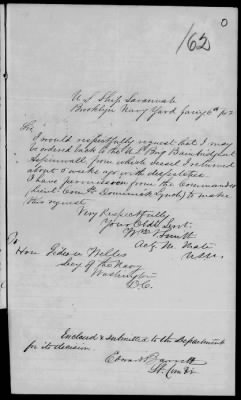 0
162
U.S. Ship Savannah
Brooklyn Navy Yard Jany 6th 1862
Sir
I would respectfully request that I may
be ordered back to the U.S. Brig Bainbridge at
Aspinwall, from which vessel I returned
about 5 weeks ago with despatches
I have permission from the Commander
Lieut. Comdg Lynch) to make
this request
Very Respectfully
Your Obdt Servt.
Wm
Actg M. Mate
To
Hon Gideon Welles
Secy of the Navy
Washington
D.C.
Enclosed & submitted to the Department
for its decision.
Edward Barrett
Lt Com